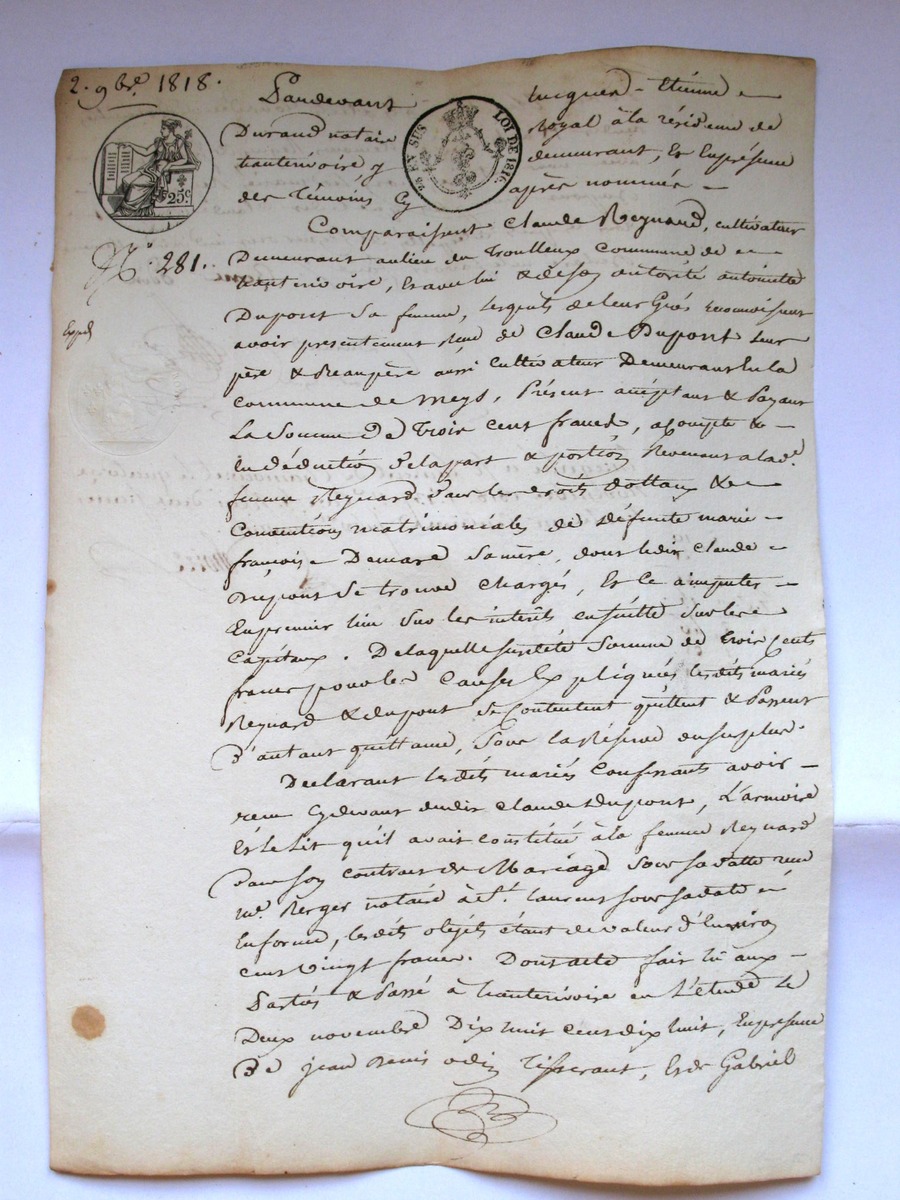 2. 9bre. 1818.
Pardevant Jacques-Étienne
Durand notaire Royal à la résidence de
hauterivoire, y demeurant, Et En présence
des témoins cy après nommés -
25c.
LOI DE 1816.
Comparaissent Claude Reynard, cultivateur
No. 281.
Demeurant au lieu du Trouilleux Commune de
hauterivoire, Et avec lui & de son autorité antoinette
Dupont sa femme, lesquels de leur Grés reconnoissent
Expé
avoir présentement Reçu de Claude Dupont leur
père & Beaupère aussi Cultivateur Demeurant En la
Commune de meys, Présent acceptant & Payant
La Somme De Trois Cent francs, acompte &
En déduction de la part & portion Revenant a lad.
femme Reynard Sur les droits dottaux &
Conventions matrimoniales de défunte marie
françoise Demare Sa mère, dont ledit Claude
Dupont Se trouve chargés, Et Ce à imputer
En premier lieu Sur les intérêts ensuitte Sur les
Capitaux. De laquelle Somme de trois Cents
francs pour les Causes Expliquées lesdits mariés
Reynard & dupont Se Contentent quittent & Passent
D'autant quittance, Sous la Réserve du surplus.
Déclarant lesdits mariés Confessants avoir
reçu Cydevant dudit Claude Dupont, L'armoire
Et le Lit qu'il avait constitué à la femme Reynard
Dans son contrat de Mariage Sous sa datte reçu
me. Berger notaire à St. Laurent sous sa date
En forme, lesdits objets étant de valeur d'Environ
Cent vingt francs. Dont acte fait lû aux
Parties & Passé à hauterivoire en L'étude Le
Deux novembre Dix huit cent dix huit, En présence
De jean Denis odin Tisserant, Et de Gabriel